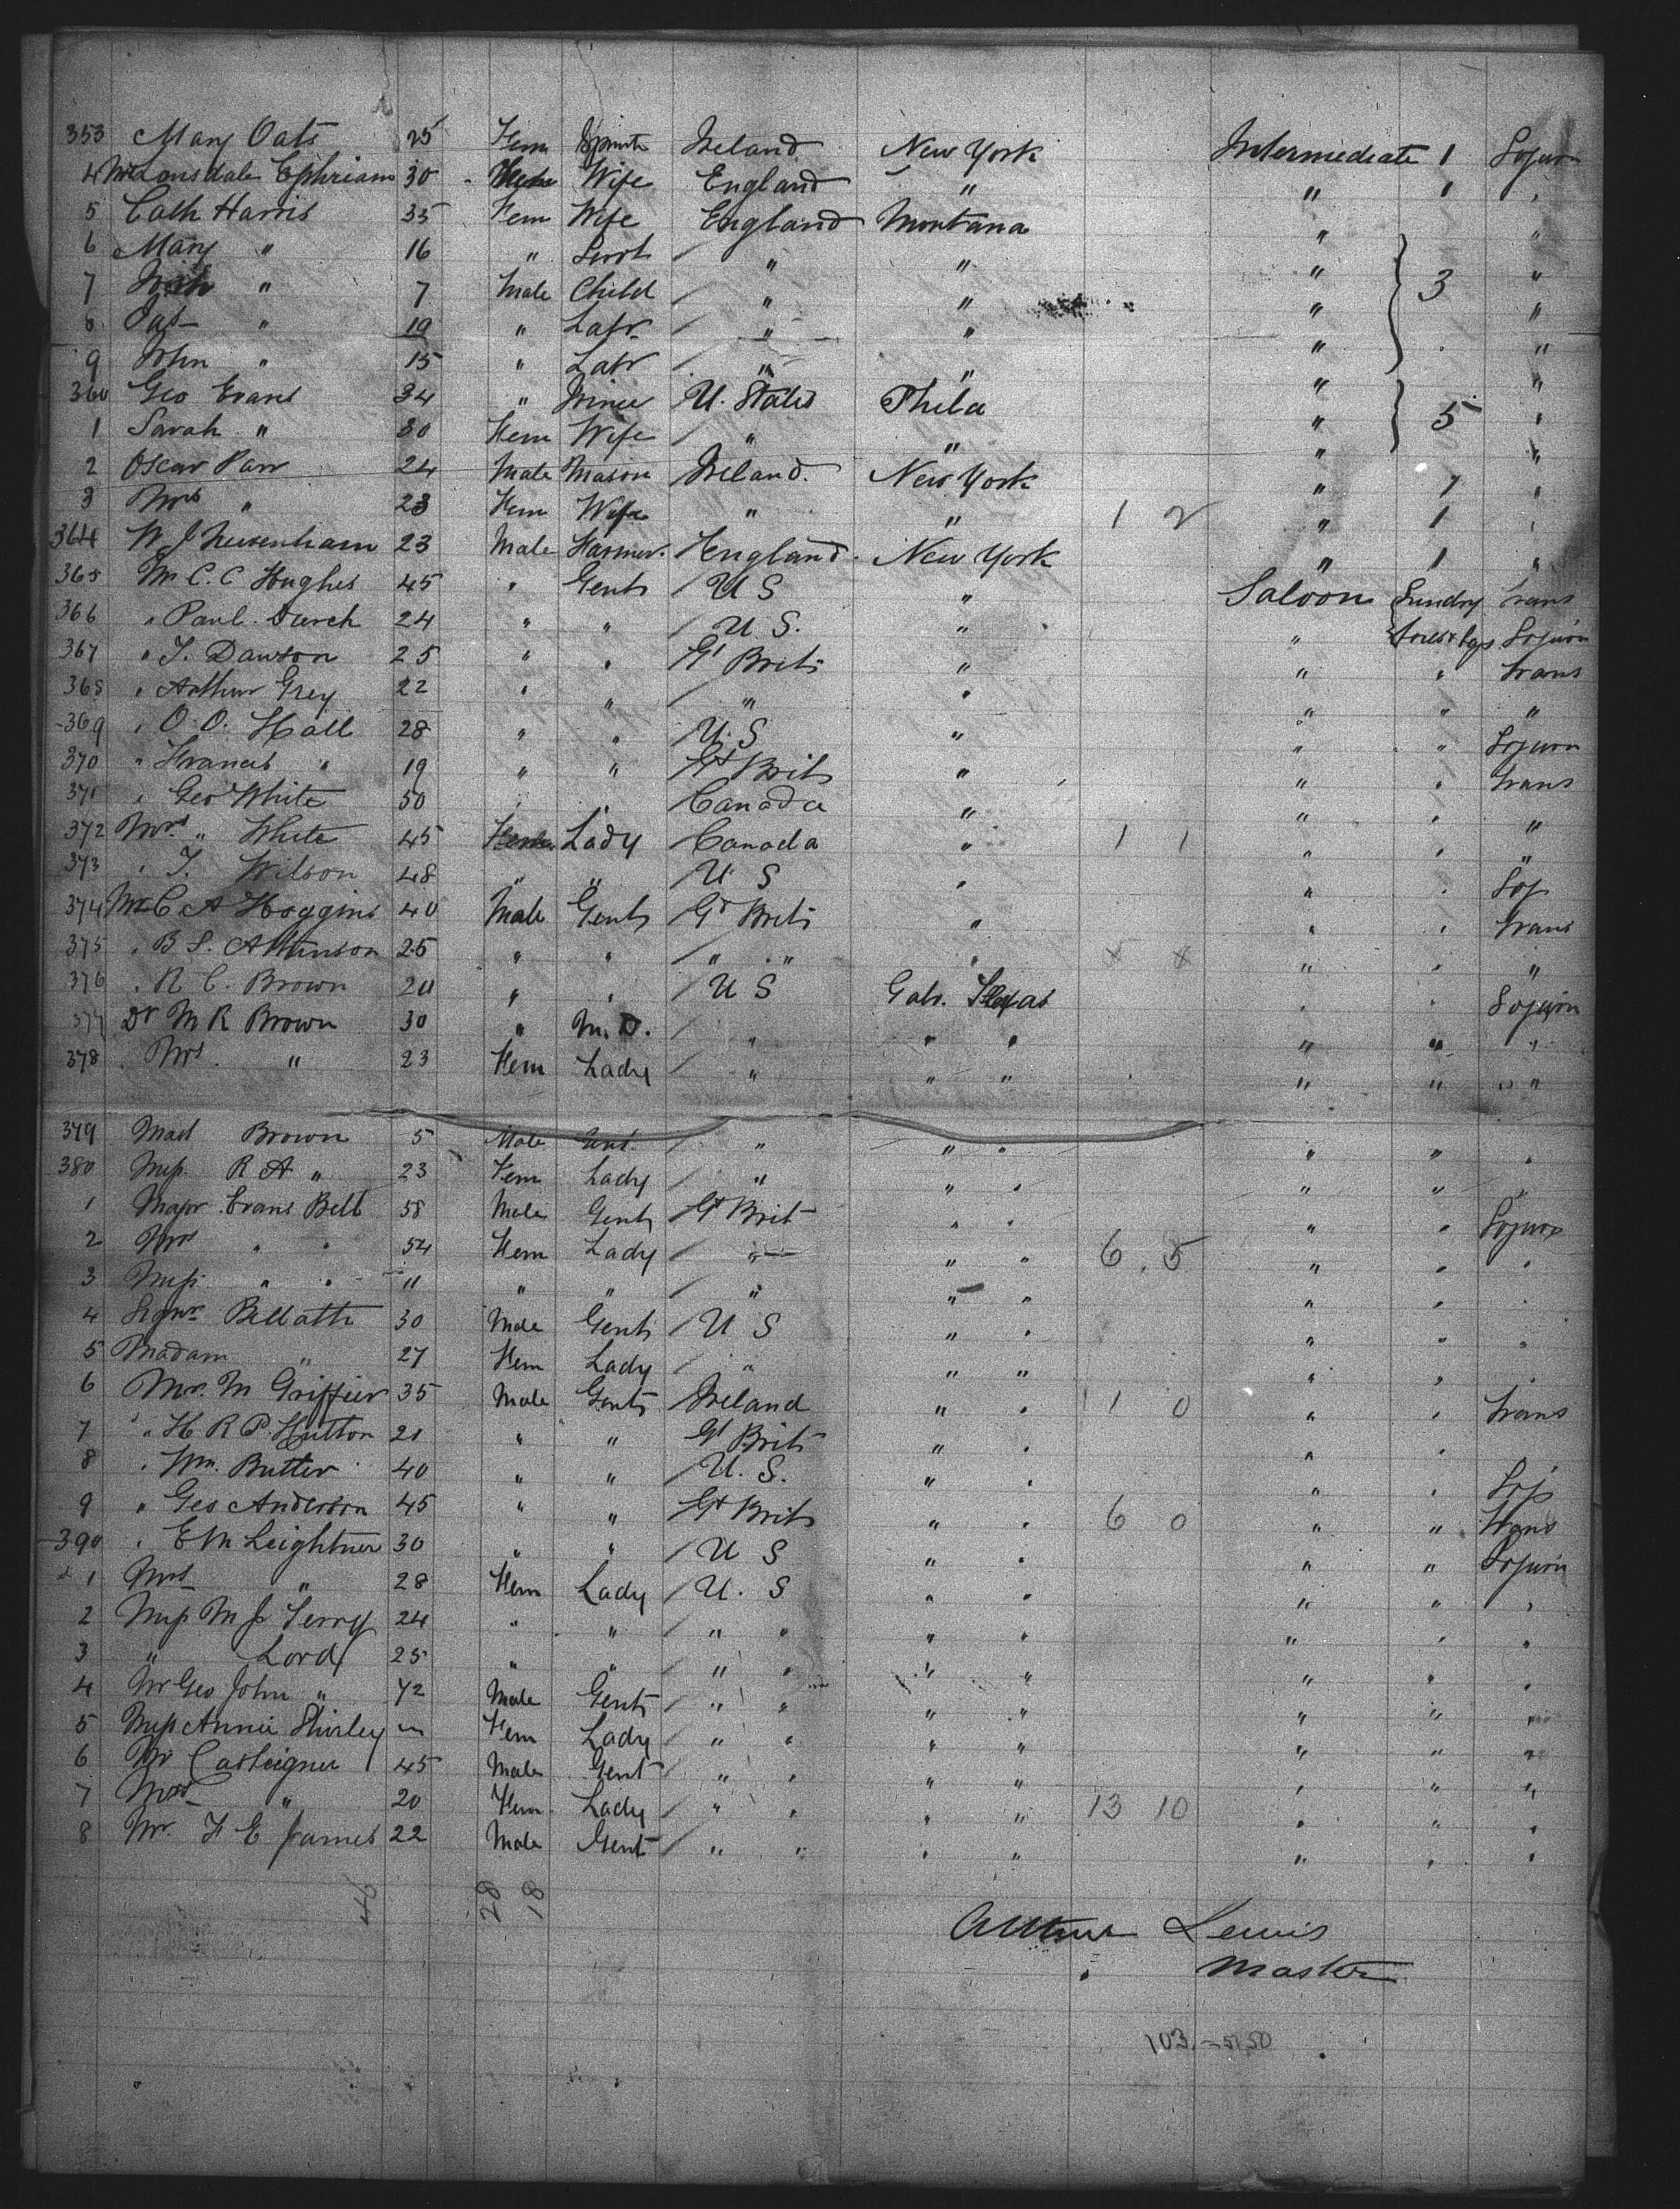 353 Mary Oats 25 Fem Spinste Ireland New York Intermediate 1 Sojurn
4 Mrs Lonsdale Ephriam 30 Fem Wife England " " 1 "
5 Cath Harris 35 Fem Wife England Montana " "
6 Mary " 16 " Servt " " " "
7 " 7 Male Child " " " 3 "
8 Pat " 19 " Labr " " " "
9 John " 15 " Labr " " " "
360 Geo Evans 34 " U. States Phila " 5 "
1 Sarah " 30 Fem Wife " " " "
2 Oscar Parr 24 Male Mason Ireland. New York " 1 "
3 Mrs " 23 Fem Wife " " 1 2 " 1 "
364 W J Neuvenham 23 Male Farmer. England. New York " 1 "
365 Mr C. C Hughes 45 " Gent U S " Saloon Sundry trans
366 " Paul. Durch 24 " " U. S. " " Sojurn
367 " T. Dawson 25 " " Gt Brit " " " trans
368 " Arthur Grey 22 " " " " " " "
369 " O. O. Hall 28 " " U. S " " " Sojurn
370 " Francis " 19 " " Gt Brit " " " trans
371 " Geo White 50 " " Canada " " " "
372 Mrs " White 45 Fem Lady Canada " 1 1 " " "
373 " T. Wilson 48 " " U. S " " " Soj
374 Mr C A Hoggins 40 Male Gent Gt Brit " " " trans
375 " B S. Atkinson 25 " " " " " x x " " "
376 " R C. Brown 20 " " U S Galv. Texas " " Sojurn
377 Dr M R Brown 30 " M. D. " " " " " "
378 Mrs " 23 Fem Lady " " " " " " "
379 Mast Brown 5 Male " " " " " "
380 Miss R A " 23 Fem Lady " " " " " "
1 Major Evans Bell 58 Male Gent Gt Brit " " " " Sojurn
2 Mrs " " 54 Fem Lady " " " 6 . 5 " " "
3 Miss " " 11 " " " " " " " "
4 Signr Bellatti 30 Male Gent U S " " " " "
5 Madam " 27 Fem Lady " " " " " "
6 Mr. M Griffier 35 Male Gent Ireland " " 1 0 " " trans
7 " H R P. Hutton 21 " " Gt Brit " " " "
8 " Wm. Butler 40 " " U. S. " " " " Soj
9 " Geo Anderson 45 " " Gt Brit " " 6 0 " " trans
390 " E M Leightner 30 " " U S " " " " Sojurn
1 Mrs " 28 Fem Lady U. S " " " " "
2 Miss M J Terry 24 " " " " " " " " "
3 " Lord 25 " " " " " " " " "
4 Mr Geo John " 42 Male Gent " " " " " " "
5 Miss Annie Shirley Fem Lady " " " " " " "
6 Mr Casteigner 45 Male Gent " " " " " " "
7 Mrs " 20 Fem. Lady " " " " 13 10 " " "
8 Mr. F E James 22 Male Gent " " " " " " "
46 28 18
Arthur Lewis
Master
103. = 51,50